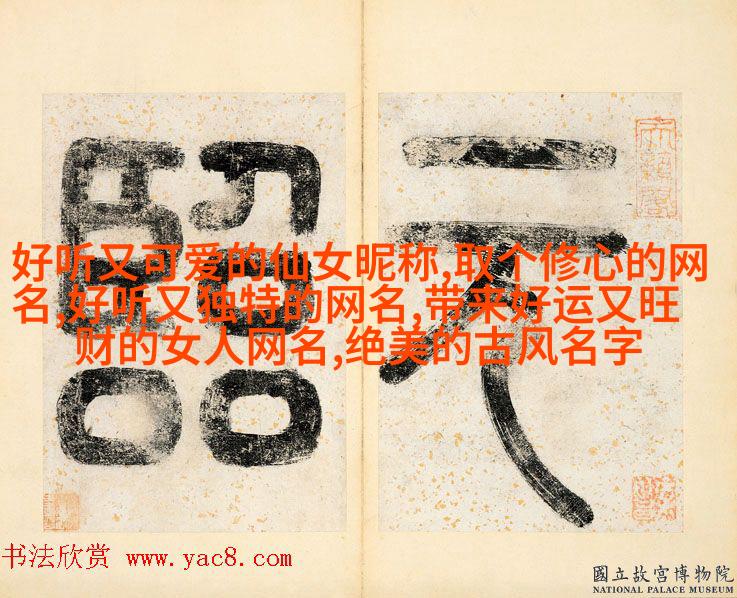 元
好听又可爱的仙女昵称,取个修心的网
名,好听又独特的网名,带来好运又旺
财的女人网名,绝美的古风名字
书法欣赏 www.yac8.com
國立故宮博物院
NATIONAL PALACE MUSEUM